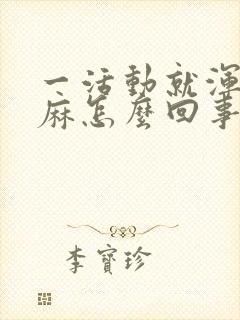 一活動就渾
麻怎麼回事
李寶珍